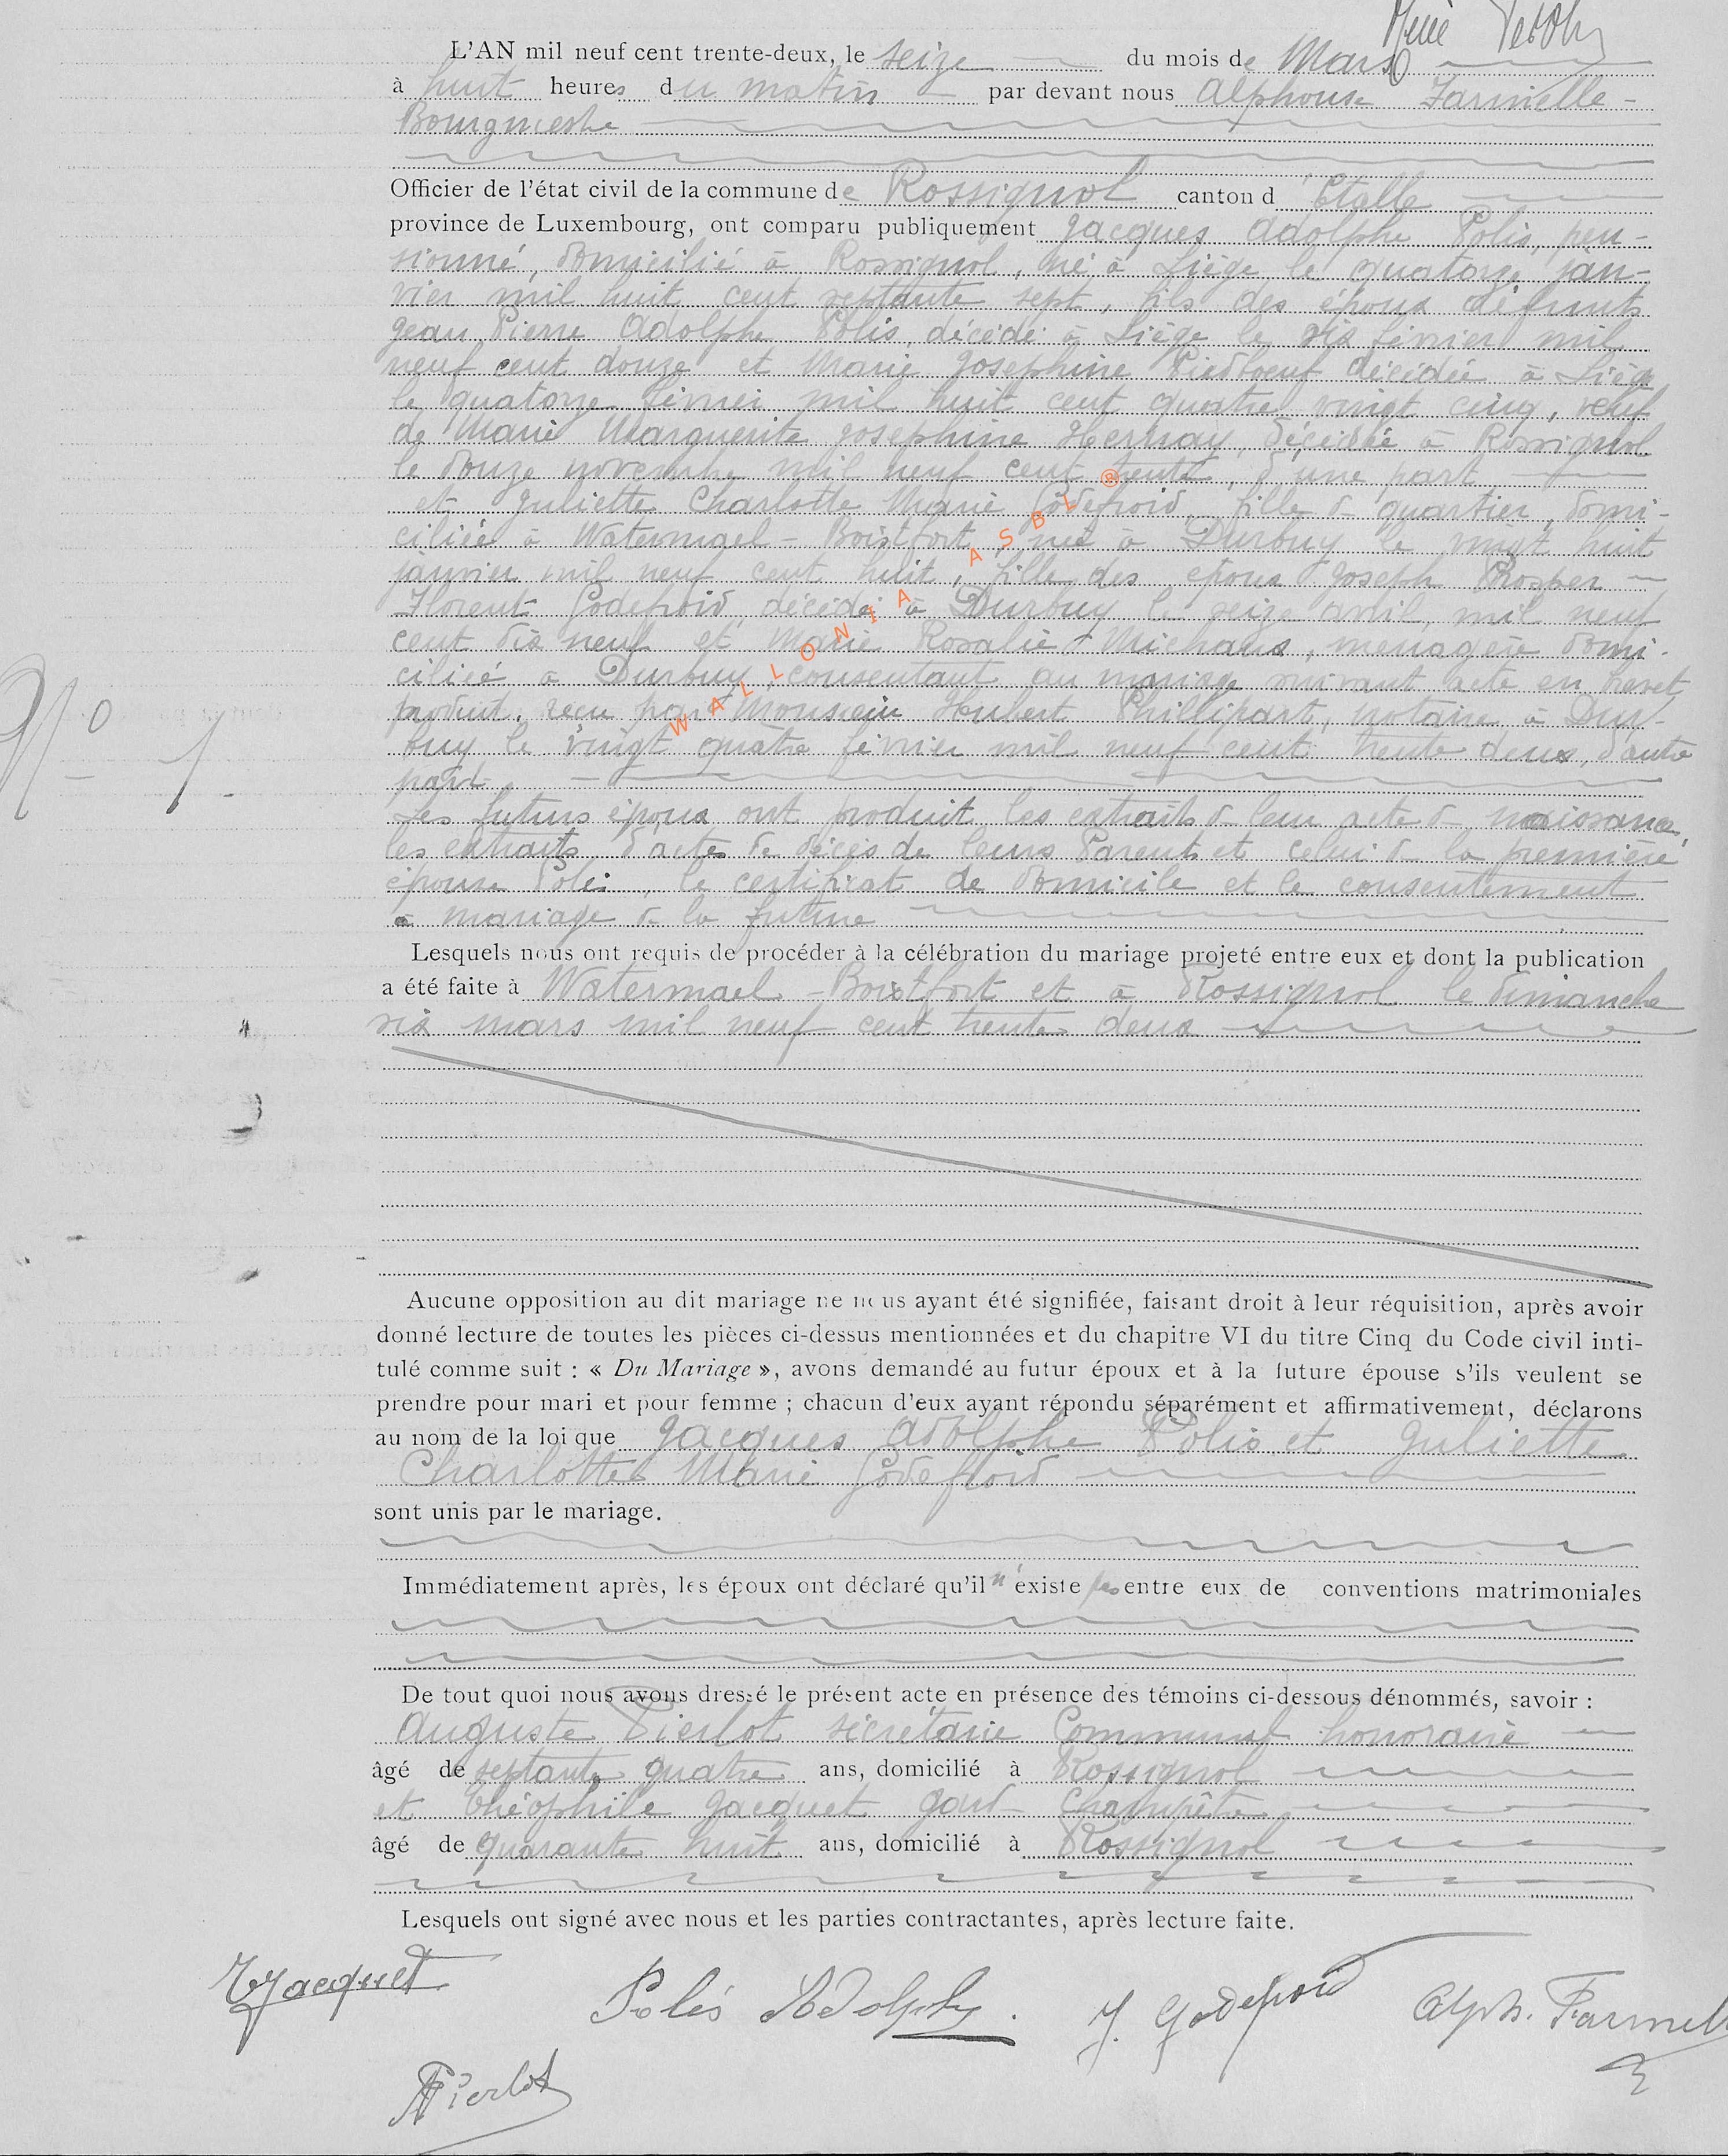 L'AN mil neuf cent trente-deux, le seize du mois de Mars
à huit heures du matin par devant nous Alphonse Farinelle
Bourgmestre
Officier de l'état civil de la commune de Rossignol canton d'Etalle
province de Luxembourg, ont comparu publiquement Jacques Adolphe Polis, pen-
sionné, domicilié à Rossignol, né à Liège le quatorze jan-
vier mil huit cent septante sept, fils des époux défunts
Jean Pierre Adolphe Polis, décédé à Liège le dix février mil
neuf cent douze et Marie Josephine Piedboeuf décédée à Liège
le quatorze février mil huit cent quatre vingt cinq, veuf
de Marie Marguerite Josephine Hernay, décédée à Rossignol
le douze novembre mil neuf cent trente, d'une part
et Juliette Charlotte Marie Godefroid, fille de quartier, domi-
ciliée à Watermael-Boitsfort, née à Durbuy le vingt huit
janvier mil neuf cent huit, fille des époux Joseph Prosper
Florent Godefroid décédé à Durbuy le seize avril, mil neuf
cent dix neuf et Marie Rosalie Michaux, menagère domi-
ciliée à Durbuy, consentant au mariage suivant acte en brevet,
produit, recu par Monsieur Hubert Phillipart, notaire à Dur-
buy le vingt quatre février mil neuf cent trente deux, d'autre
part
N° 1.
Les futurs époux ont produit les extraits de leur acte de naissance,
les extraits d'actes de décès de leurs Parents et celui de la première
épouse Polis, le certificat de domicile et le consentement
à mariage de la future
Lesquels nous ont requis de procéder à la célébration du mariage projeté entre eux et dont la publication
a été faite à Watermael-Boitsfort et à Rossignol le dimanche
six mars mil neuf cent trente deux
Aucune opposition au dit mariage ne nous ayant été signifiée, faisant droit à leur réquisition, après avoir
donné lecture de toutes les pièces ci-dessus mentionnées et du chapitre VI du titre Cinq du Code civil inti-
tulé comme suit : « Du Mariage », avons demandé au futur époux et à la future épouse s'ils veulent se
prendre pour mari et pour femme ; chacun d'eux ayant répondu séparément et affirmativement, déclarons
au nom de la loi que Jacques Adolphe Polis et Juliette
Charlotte Marie Godefroid
sont unis par le mariage.
Immédiatement après, les époux ont déclaré qu'il n'existe pas entre eux de conventions matrimoniales
De tout quoi nous avons dressé le présent acte en présence des témoins ci-dessous dénommés, savoir :
Auguste Pierlot secrétaire Communal honoraire
âgé de septante quatre ans, domicilié à Rossignol
et Théophile Jacquet gard Champêtre
âgé de quarante huit ans, domicilié à Rossignol
Lesquels ont signé avec nous et les parties contractantes, après lecture faite.
T Jacquet Polis Adolphe. J. Godefroid Alph. Farinelle
A Pierlot
WALLONIA ASBL ®